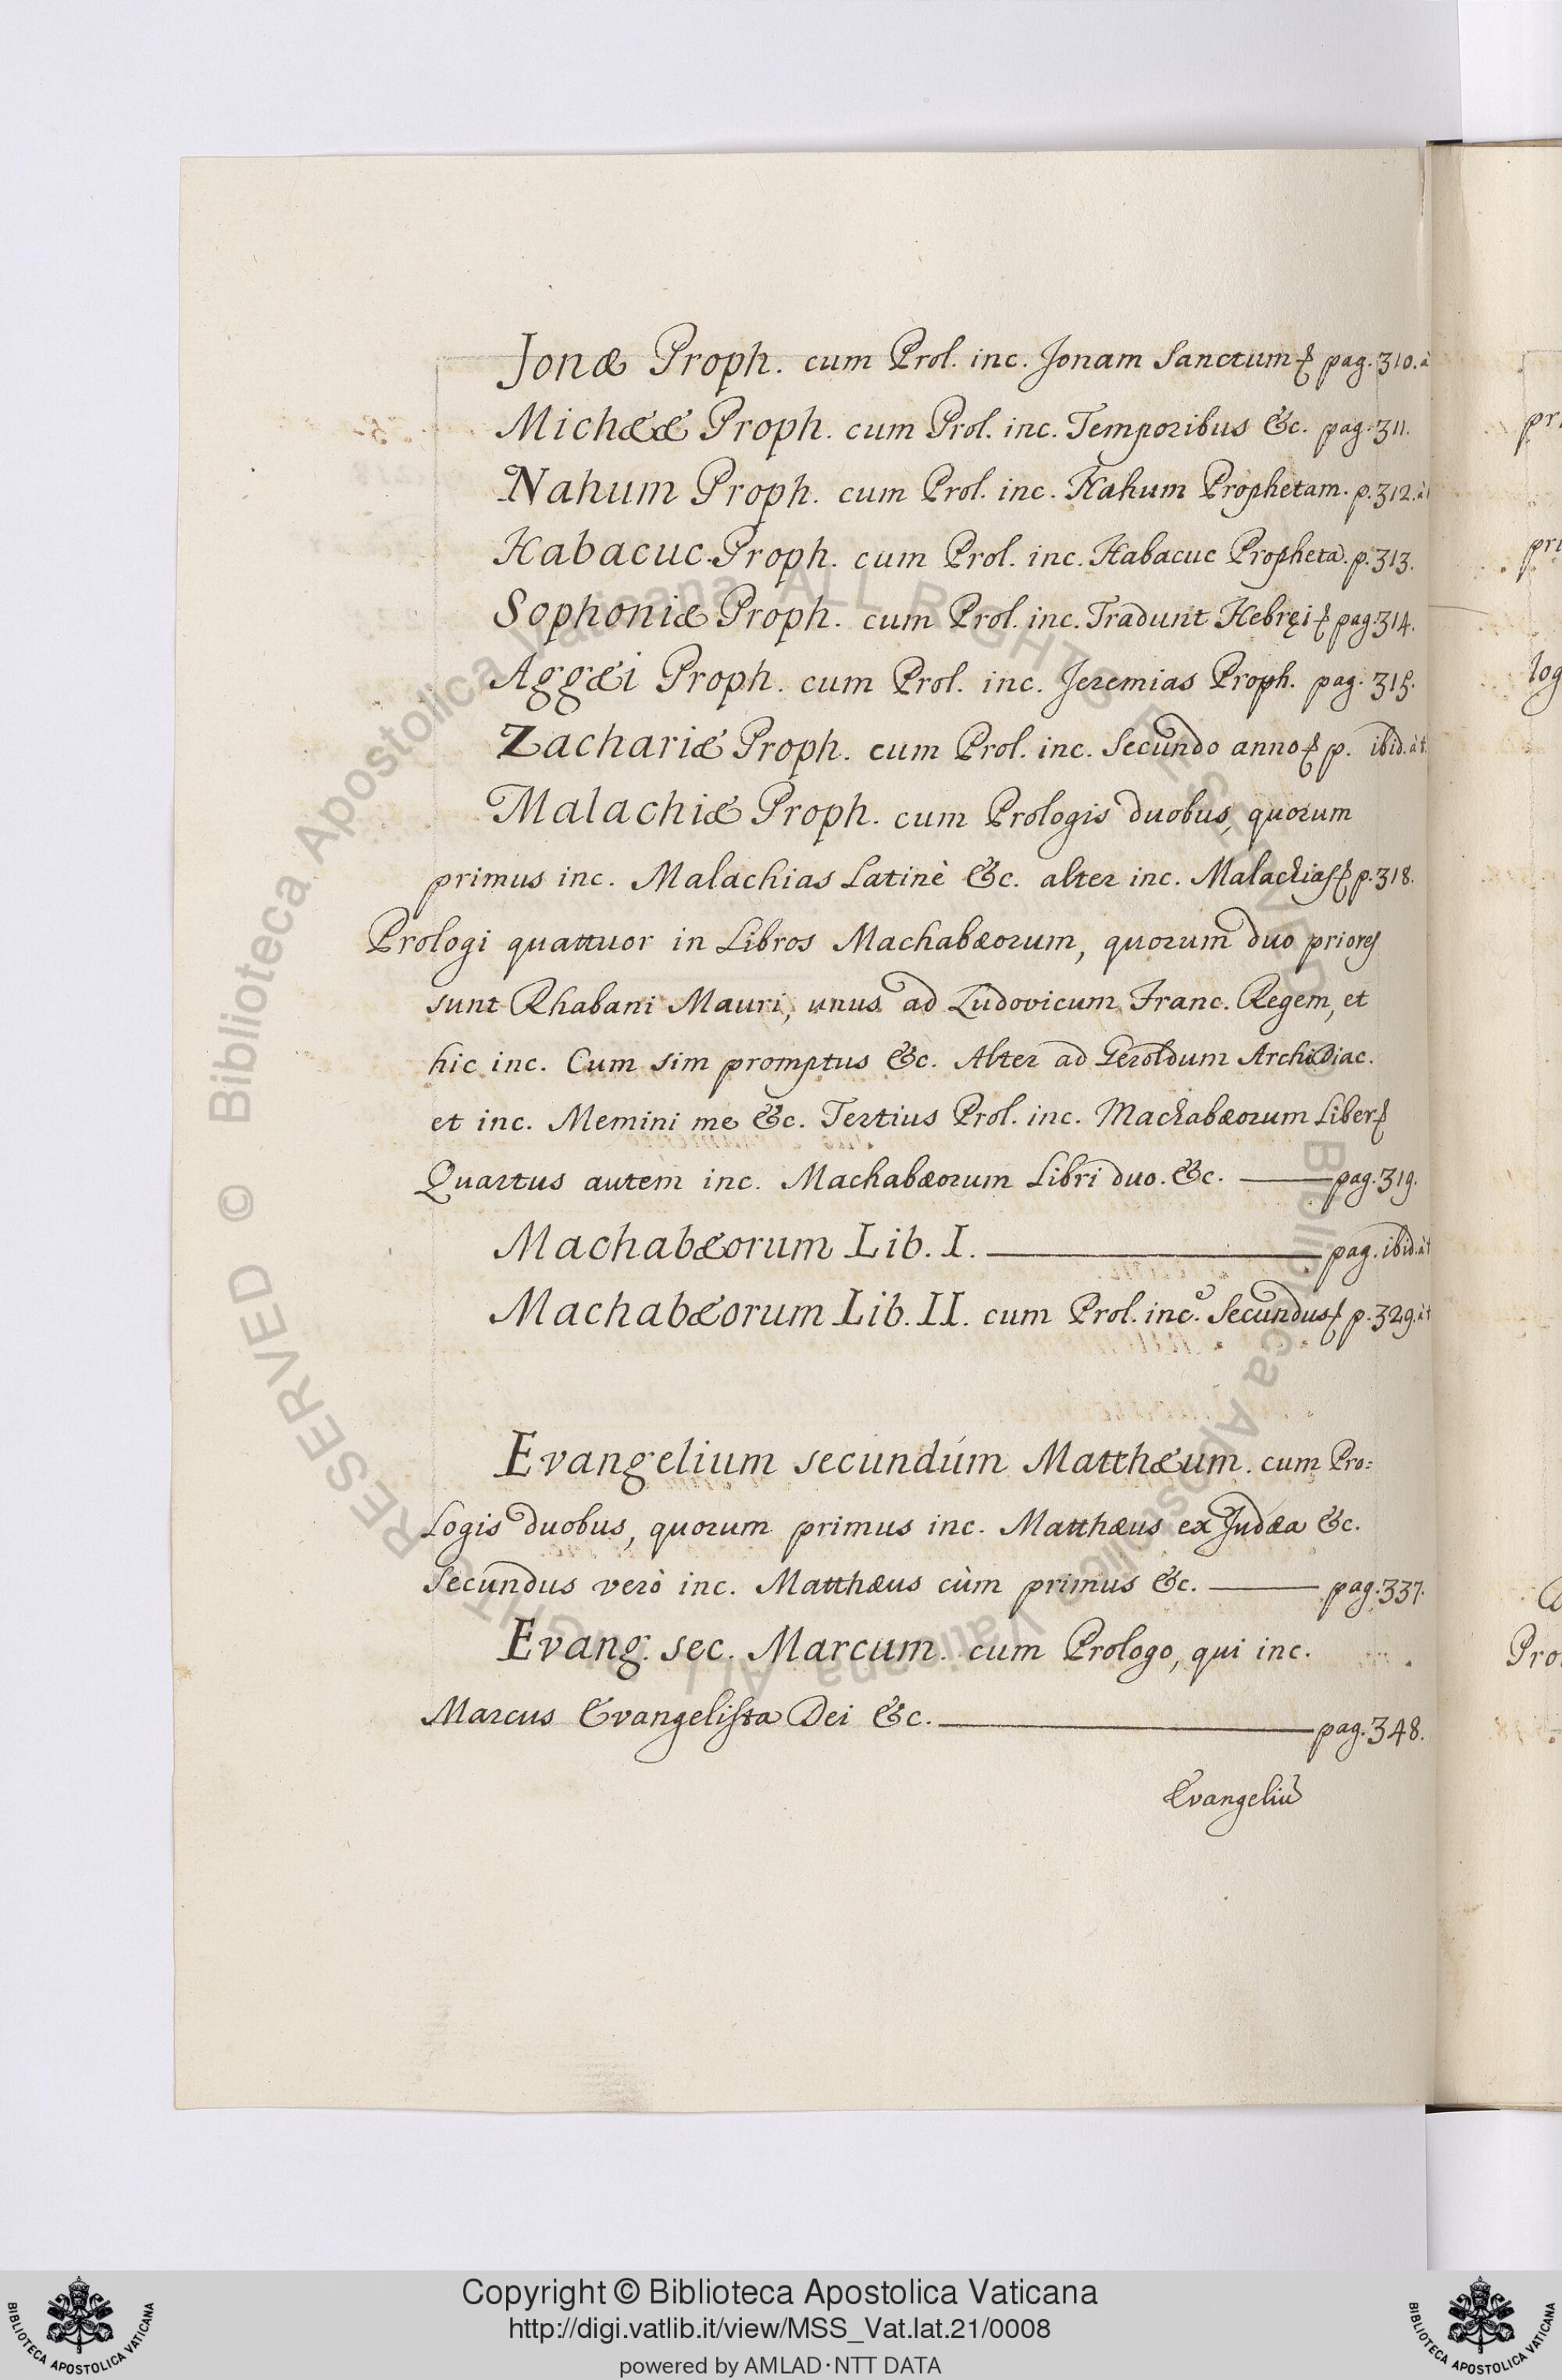 Jonæ Proph. cum Prol. inc. Jonam Sanctum & pag. 310. à
Michææ Proph. cum Prol. inc. Temporibus &c. pag. 311.
Nahum Proph. cum Prol. inc. Nahum Prophetam. p. 312. àt
Habacuc. Proph. cum Prol. inc. Habacuc Propheta. p. 313.
Sophoniæ Proph. cum Prol. inc. Tradunt Hebręi & pag. 314.
Aggæi Proph. cum Prol. inc. Jeremias Proph. pag. 315.
Zachariæ Proph. cum Prol. inc. Secundo anno & p. ibid. àt
Malachiæ Proph. cum Prologis duobus, quorum
primus inc. Malachias Latinè &c. alter inc. Malachias & p. 318.
Prologi quattuor in Libros Machabæorum, quorum duo priores
sunt Rhabani Mauri, unus ad Ludovicum Franc. Regem, et
hic inc. Cum sim promptus &c. Alter ad Geroldum Archidiac.
et inc. Memini me &c. Tertius Prol. inc. Machabæorum Liber &
Quartus autem inc. Machabæorum Libri duo. &c. pag. 319.
Machabæorum Lib. I. pag. ibid. àt
Machabæorum Lib. II. cum Prol. inc. Secundus & p. 329. àt
Evangelium secundúm Matthæum. cum Pro=
Logis duobus, quorum primus inc. Matthæus ex Judæa &c.
Secundus verò inc. Matthæus cùm primus &c. pag. 337.
Evang. sec. Marcum. cum Prologo, qui inc.
Marcus Evangelista Dei &c. pag. 348.
Evangeliũ
pri
log
Pro
© Biblioteca Apostolica Vaticana ALL RIGHTS RESERVED
© Biblioteca Apostolica Vaticana ALL RIGHTS RESERVED
Copyright © Biblioteca Apostolica Vaticana
http://digi.vatlib.it/view/MSS_Vat.lat.21/0008
powered by AMLAD·NTT DATA
BIBLIOTECA APOSTOLICA VATICANA
BIBLIOTECA APOSTOLICA VATICANA